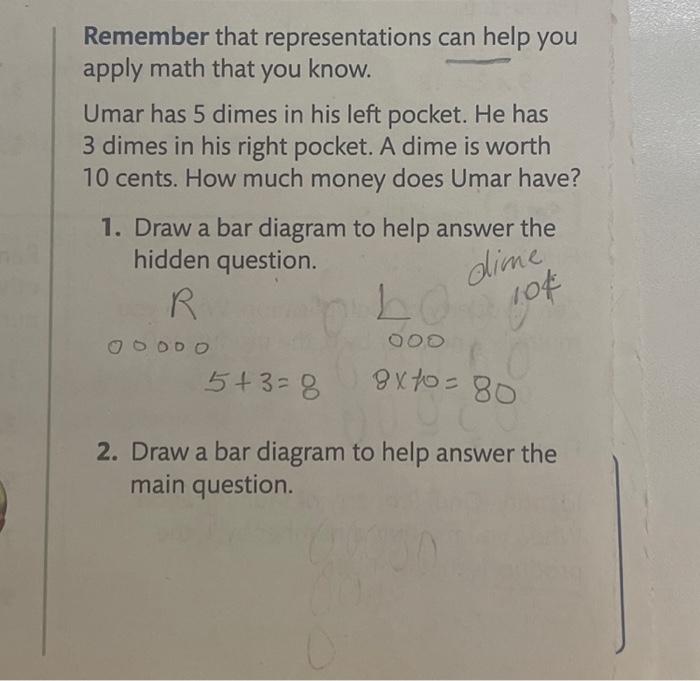 Remember that representations can help you
apply math that you know.
Umar has 5 dimes in his left pocket. He has
3 dimes in his right pocket. A dime is worth
10 cents. How much money does Umar have?
1. Draw a bar diagram to help answer the
hidden question.
dime
10¢
R L
00000 000
5+3=8 8x10=80
2. Draw a bar diagram to help answer the
main question.